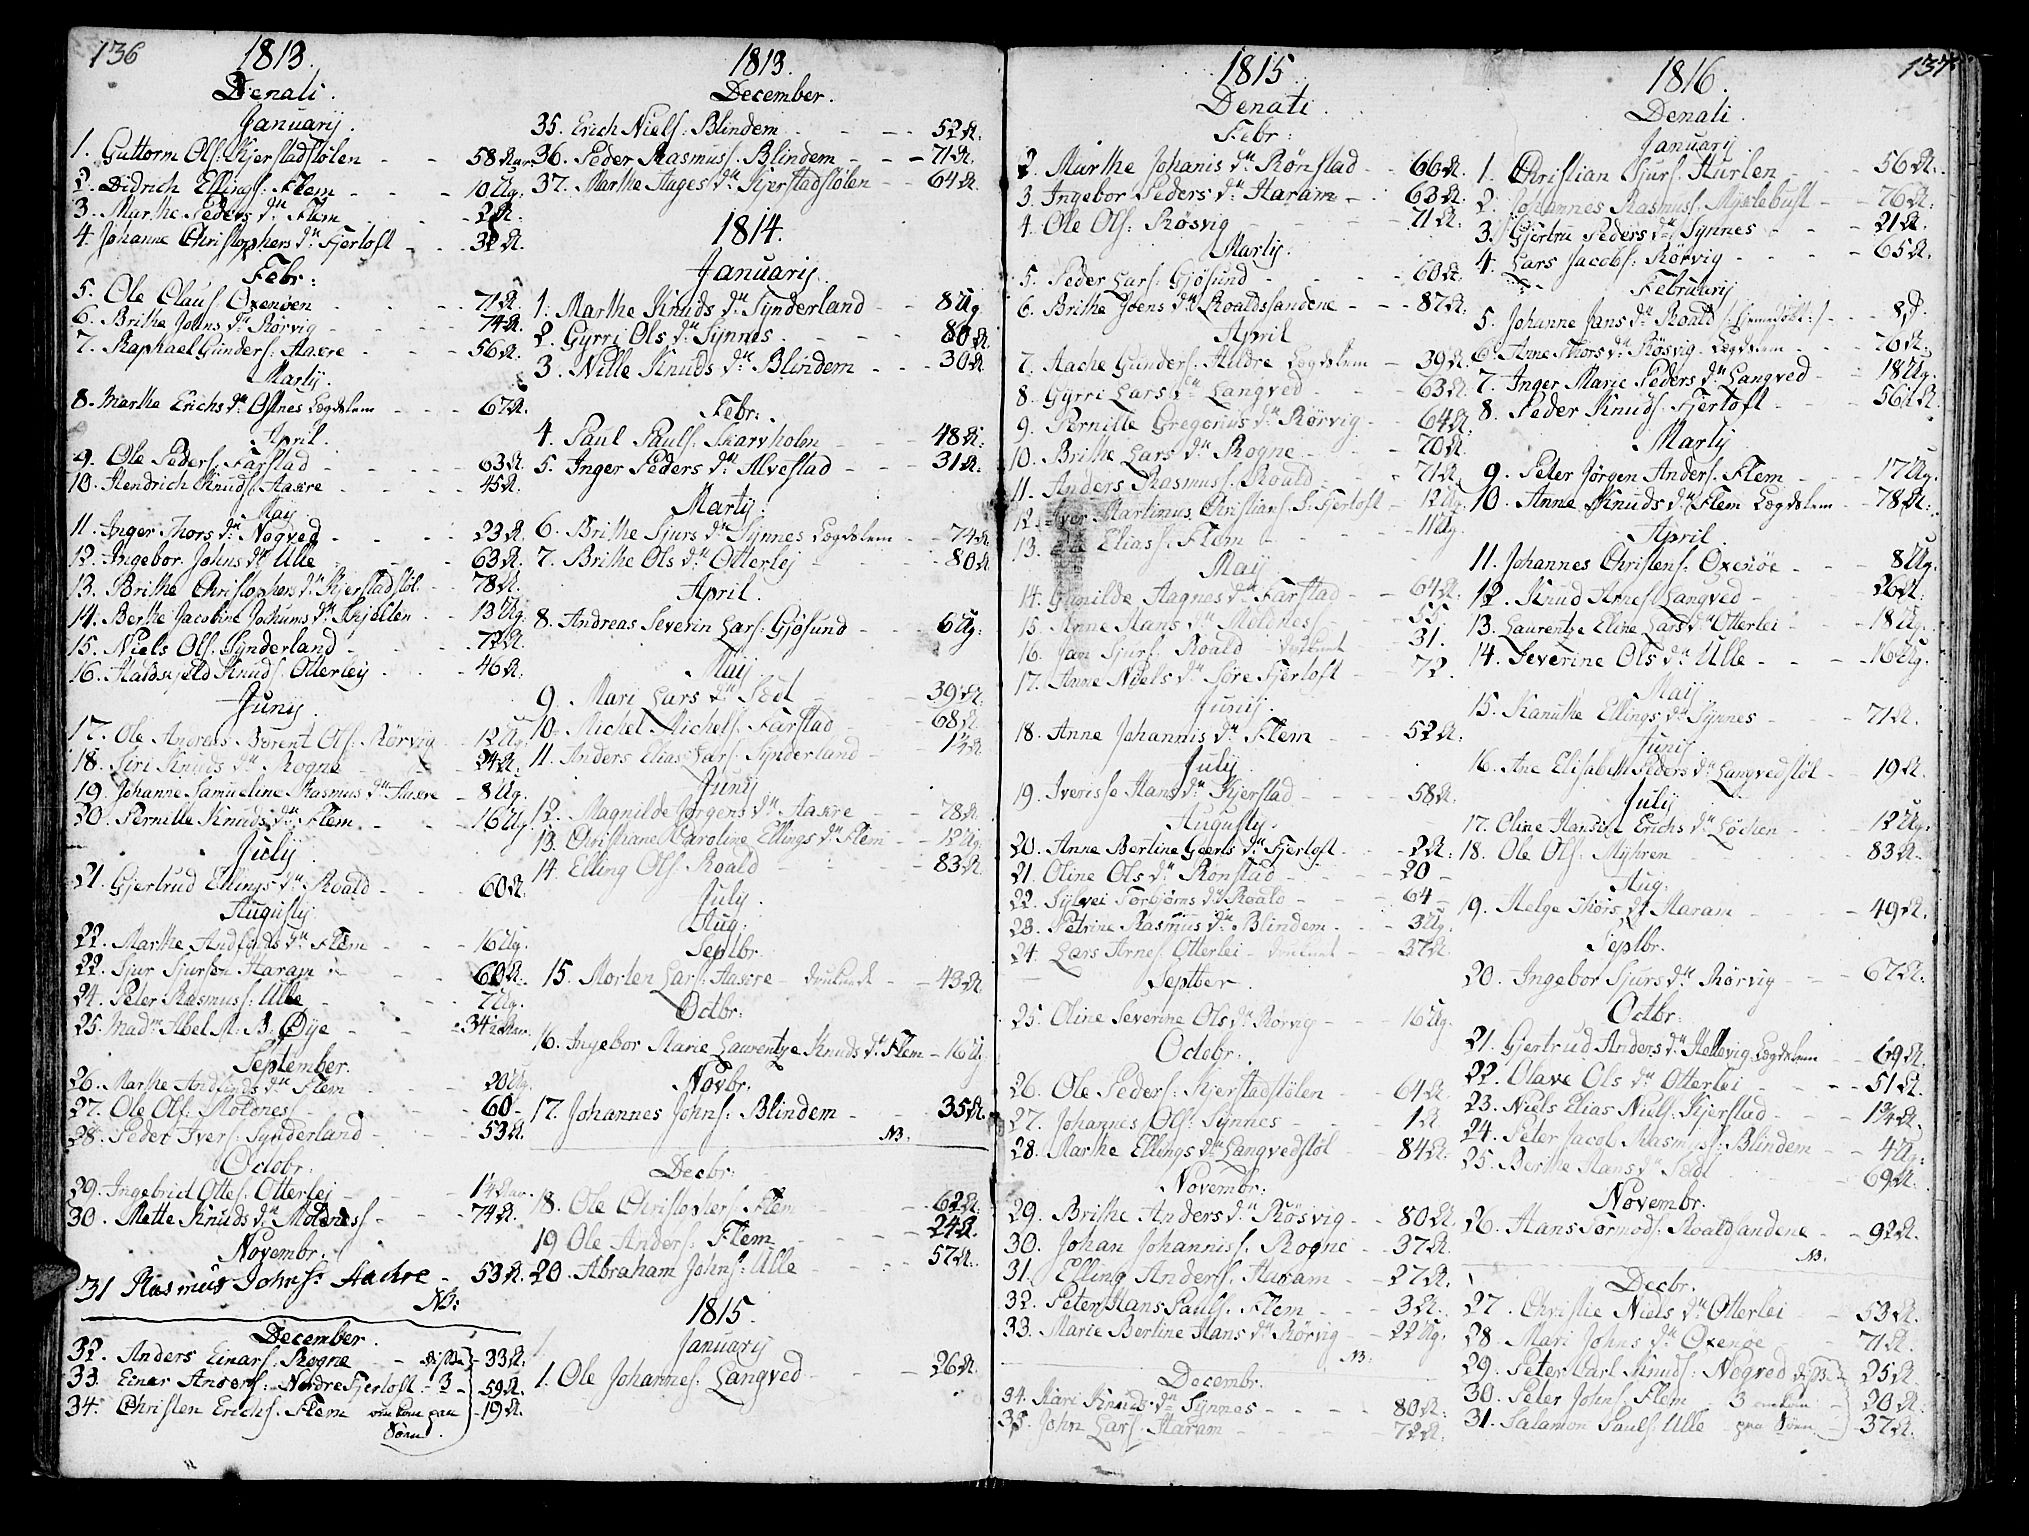 136
1813.
Denati.
Januarij.
1. Guttorm Ols: Kjerstadstølen - - 58 Aar
2. Didrich Ellings: Flem - - - 10 Ug.
3. Marthe Peders dr. Flem - - - 2 A.
4. Johanne Christophers dr. Fjertoft - - 32 A.
Febr:
5. Ole Claus: Oxenøen - - - 71 A.
6. Brithe Johns dr. Rørvig - - - 74 A.
7. Raphael Gunders: Aakre - - - 56 A.
Martij.
8. Marthe Erichs dr. Ostnes Lægdslem - - 67 A.
April.
9. Ole Peders: Farstad - - - 63 A.
10. Hendrich Knuds: Aakre - - - 45 A.
May.
11. Inger Thors dr. Nogved - - - 23 A.
12. Ingebor Johns dr. Ulle - - - 63 A.
13. Brithe Christophers dr. Kjerstadstøl. - 78 A.
14. Berthe Jacobine Jochums dr. Skjelten - 13 Ug.
15. Niels Ols: Synderland - - - 72 A.
16. Knuds: Otterlej - - 46 A.
Junij
17. Ole Andreas Berent Ols: Rørvig - 12 Ug.
18. Siri Knuds dr. Rogne - - - 24 A.
19. Johanne Samueline Rasmus dr. Aakre - 8 Ug.
20. Pernille Knuds dr. Flem - - 16 Ug.
Julij.
21. Gjertrud Ellings dr. Roald - - 60 A.
Augustij.
22. Marthe Andfinds dr. Flem - - 16 Ug.
22. Sjur Sjursøn Haram - - 60 A.
24. Peter Rasmus: Ulle - - - 7 Ug.
25. Madm. Abel M. B. Øye - - - 34 Aar
September.
26. Marthe Andfinds dr. Flem - - 20 Ug.
27. Ole Ols: Moldnes - - - 60 -
28. Peder Ivers: Synderland - - 53 A.
Octobr.
29. Ingebrict Ottes: Otterlej - - 1¼ Aar.
30. Mette Knuds dr. Moldness - - 74 A.
Novembr.
31 Rasmus Johns: Aachre - 53 A.
NB:
December.
32. Anders Einars: Rogne - - disse 33 A.
33. Einar Anders: Nordre Fjertoft - 3 - 59 A.
34. Christen Erichs: Flem omkom paa - 19 A.
Søen.
1813.
December.
35. Erich Niels: Blindem - - - 52 A:
36. Peder Rasmus: Blindem - - - 71 A.
37. Marthe Aages dr. Kjerstadstølen - - 64 A.
1814.
Januarij.
1. Marthe Knuds dr. Synderland - - 8 Ug.
2. Gyrri Ols dr. Synnes - - - 80 A.
3. Nille Knuds dr. Blindem - - - 30 A.
Febr:
4. Paul Pauls: Skarvholm - - - 48 A:
5. Inger Peders dr. Alvestad - - - 31 A.
Martij.
6. Brithe Sjurs dr. Synnes Lægdslem - - 74 A.
7. Brithe Ols dr. Otterlej - - - 80 A.
April.
8. Andreas Severin Lars: Gjøsund - - - 6 Ug:
Maij
9. Mari Lars dr. Sæt - - - 39 A.
10. Michel Michels: Farstad - - 68 A.
11. Anders Elias Lars: Synderland - - 1¼ A.
Junij
12. Magnilde Jørgens dr. Aakre - - 78 A.
13. Christiane Caroline Ellings dr. Flem - - 12 Ug.
14. Elling Ols: Roald - - - 83 A.
July.
Aug.
Septbr.
15. Morten Lars: Aakre - druknede - - 43 A.
Octbr:
16. Ingebor Marie Laurentze Knuds dr. Flem - 16 Ug
Novbr.
17. Johannes Johns: Blindem - - 35 A.
NB.
Decbr.
18. Ole Christophers: Flem - - - 62 A.
19 Ole Anders: Flem - - - 24 A.
20. Abraham Johns: Ulle - - - 57 A.
1815.
Januarij
1. Ole Johannes: Langved - - - 26 A.
1815.
Denati.
Febr:
2. Marthe Johanis dr. Rønstad - - 66 A.
3. Ingebor Peders dr. Haram - - 63 A.
4. Ole Ols: Røsvig - - - 71 A.
Martij.
5. Peder Lars: Gjøsund - - - 60 A.
6. Brithe Joens dr. Roaldssandene - - - 87 A.
April
7. Aache Gunders: Audre Lægdslem - 39 A.
8. Gyrri Lars dr. Langved - - - 63 A.
9. Pernille Gregorius dr. Rørvig - - 64 A.
10. Brithe Lars dr. Rogne - - - 70 A.
11. Anders Rasmus: Roald - - - 71 A.
12. Iver Martinus Christians: S: Fjertoft - 12 Ug.
13. Elias: Flem - - - 11 Ug.
May
14. Gunilde Aagnes dr. Farstad - - 64 A.
15. Anne Hans dr. Moldnes - - 55.
16. Jan Sjurs: Roald - druknet - 31.
17. Anne Niels dr. Søre Fjertoft - - 72.
Junij.
18. Anne Johannis dr. Flem - - 52 A.
July
19. Iverisse Hans dr. Kjerstad - - - 58 A.
Augustij.
20. Anne Bertine Geerts dr. Fjertoft - - - 2 A:
21. Oline Ols dr. Rønstad - - - 20 -
22. Sylvei Torbjørns dr. Roald - - - 64 -
23. Petrine Rasmus dr. Blindem - - 3 Ug.
24. Lars Arnes: Otterlei - druknet - - 37 A.
Septber.
25. Oline Severine Ols dr. Rørvig - - 16 Ug.
Octobr.
26. Ole Peders: Kjerstadstølen - - 64 A.
27. Johannes Ols: Synnes - - - 1 A.
28. Marthe Ellings dr. Langvedstøl - - 84 A.
Novembr:
29. Brithe Anders dr. Røsvig - - 80 A.
30. Johan Johannis: Rogne - - 37 A.
31. Elling Anders: Haram - - - 27 A.
32. Peter Hans Pauls: Flem - - - 3 A.
33. Marie Bertine Hans dr. Rørvig - - 22 Ug.
NB.
Decembr.
34. Kari Knuds dr. Synnes - - - 80 A.
35. John Lars: Haram - - - 72 A.
137
1816.
Denati.
January.
1. Christian Sjurs: Hurlen - - - 56 A.
2. Johannes Rasmus: Myklebust - - 76 A.
3. Gjertru Peders dr. Synnes - - - 21 A.
4. Lars Jacobs: Rørvig - - - 65 A.
Februarij
5. Johanne Jans dr. Roald /: hjemmedøbt :/ - - 8 d.
6. Anne Thors dr. Røsvig Lægdslem - - 70 A.
7. Inger Marie Peders dr. Langved - - 18 Ug.
8. Peder Knuds: Fjertoft - - - 56 A.
Martij
9. Peter Jørgen Anders: Flem - - - 17 Ug.
10. Anne Knuds dr. Flem Lægdslem - - 78 A.
April.
11. Johannes Christens: Oxenøe - - - 8 Ug.
12. Knud Arnes: Langved - - - 26 A.
13. Laurentze Eline Lars dr. Otterlei - - 18 Ug.
14. Severine Ols dr. Ulle - - - 16 Ug.
Maij.
15. Kanuthe Ellings dr. Synnes - - - 71 A.
Junij.
16. Ane Elisabeth Peders dr. Langvedstøl - - 19 A.
July
17. Oline Hansine Erichs dr. Løchen - - 12 Ug.
18. Ole Ols: Myhren - - - 83 A.
Aug:
19. Helge Thors dr. Haram - - - 49 A.
Septbr.
20. Ingebor Sjurs dr. Rørvig - - - 67 A.
Octbr:
21. Gjertrud Anders dr. Hellevig Lægdslem - - 69 A.
22. Olave Ols dr. Otterlei - - - 51 A.
23. Niels Elias Niels: Kjerstad - - - 1¾ A.
24. Peter Jacob Rasmus: Blindem - - 4 Ug.
25. Berthe Hans dr. Sædt - - 69 A.
Novembr.
26. Hans Tormods: Roaldsandene - - 92 A.
NB.
Decbr.
27. Christie Niels dr. Otterlei - - 53 A.
28. Mari Johns dr. Oxenøe - - - 71 A.
29. Peter Carl Knuds: Nogved disse - 25 A.
30. Peter Johns: Flem - 3 omkom - 20 A.
31. Salamon Pauls: Ulle - paa Søen - 37 A.